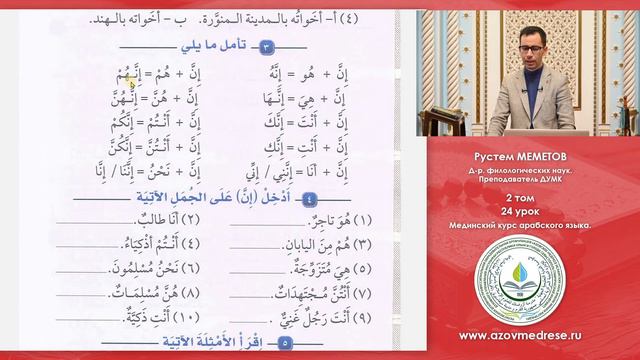 (٤) أ- أخَواتُه بالـمدينة الـمنوَّرة. ب - أخَواته بالـهند.
٣ تأمل ما يلي
إِنَّ + هُو = إِنَّهُ إِنَّ + هُمْ = إِنَّـهُمْ
إِنَّ + هِيَ = إِنَّـهَا إِنَّ + هُنَّ = إِنَّـهُنَّ
إِنَّ + أَنْتَ = إِنَّكَ إِنَّ + أَنْـتُمْ = إِنَّكُمْ
إِنَّ + أَنْتِ = إِنَّكِ إِنَّ + أَنْـتُنَّ = إِنَّكُنَّ
إِنَّ + أَنَا = إِنَّنِي / إِنِّي إِنَّ + نَحْنُ = إِنَّنَا / إِنَّا
٤ أَدْخِلْ (إنَّ) عَلَى الجُمَلِ الآتِيَة
(١) هُوَ تاجِرٌ. (٢) أَنَا طالبٌ.
(٣) هُمْ مِنَ اليابانِ. (٤) أَنْـتُمْ أَذْكِيَاءُ.
(٥) هِيَ مُتَزَوِّجَةٌ. (٦) نَحْنُ مُسْلِمُونَ.
(٧) أَنْتُنَّ مُـجْتَهِدَاتٌ. (٨) هُنَّ مُسْلِمَـاتٌ.
(٩) أَنْتَ رَجُلٌ غَنِيٌّ. (١٠) أَنْتِ ذَكِيَّةٌ.
٥ اِقْرَأ الأَمْثِلَةَ الآتِيَة
Рустем МЕМЕТОВ
Д-р. филологических наук.
Преподаватель ДУМК
2 том
24 урок
Мединский курс арабского языка.
www.azovmedrese.ru